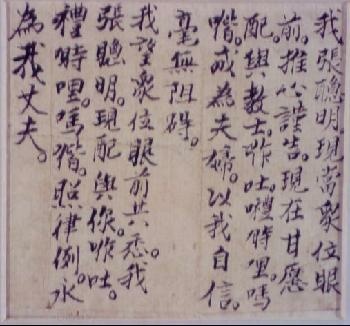 我張聰明。現當衆位眼
前。推心謹告。現在甘愿
配與教士。咋吐。時哩。嗎
喈。成為夫婦。以我自信。
毫無阻碍。
我望衆位眼前共悉。我
張聰明。現配與你。咋吐。
禮時哩。嗎喈。照律例。永
為我丈夫。